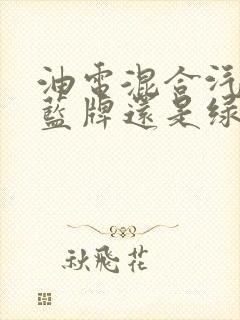 油電混合汽
藍牌還是綠
秋飛花